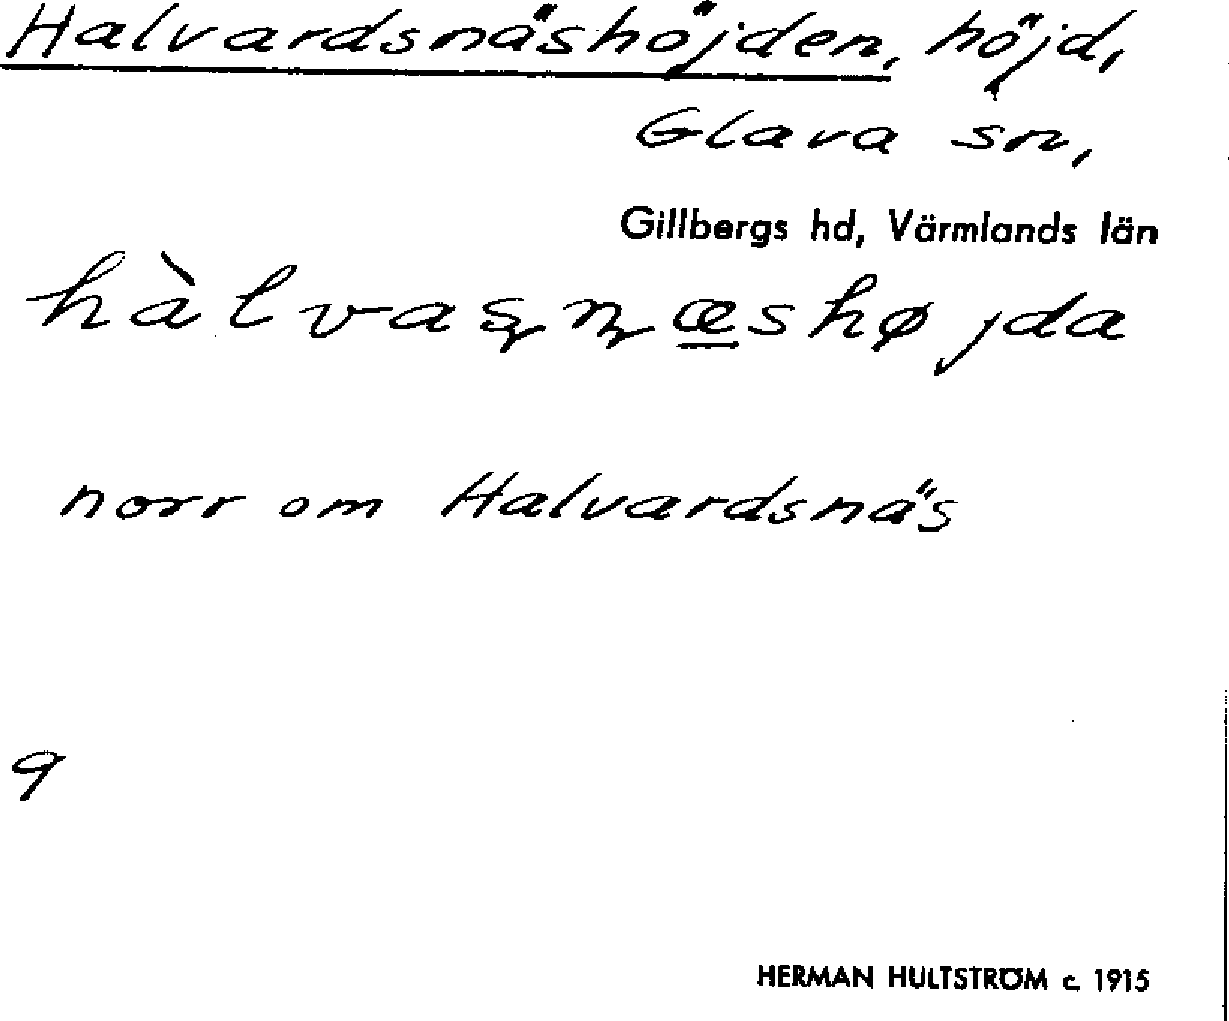 Halvardsnäshöjden, höjd,
Glava sn,
Gillbergs hd, Värmlands län
hàlvaʂɳæ̲shøjda
norr om Halvardsnäs
9
HERMAN HULTSTRÖM c. 1915